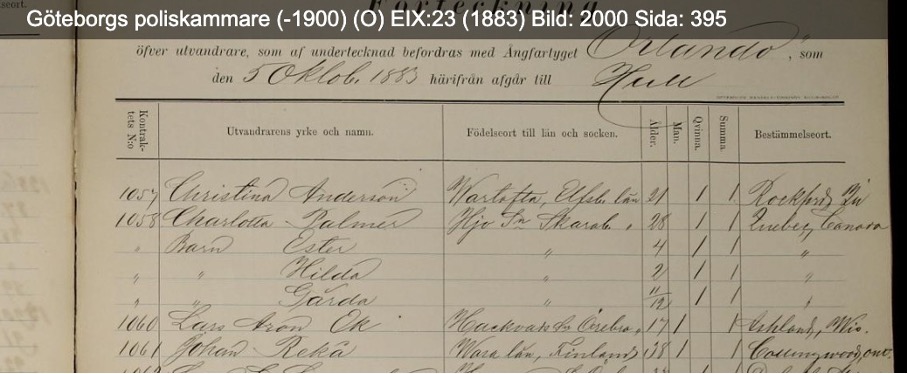 Göteborgs poliskammare (-1900) (O) EIX:23 (1883) Bild: 2000 Sida: 395
Förteckning
öfver utvandrare, som af undertecknad befordras med Ångfartyget Orlando, som
den 5 Oktob. 1883 härifrån afgår till Hull
Kontrak-tets N:o Utvandrarens yrke och namn. Födelseort till län och socken. Ålder. Man. Qvinna. Summa. Bestämmelseort.
1057 Christina Anderson Wartofta, Elfsb. län 21 1 1 Rockford
1058 Charlotta Palmér Hjo Sn Skarab. " 28 1 1 Quebec, Canada
" Barn Ester " 4 1 1 "
" " Hilda " 2 1 1 "
" " Gärda " 11/12 1 1 "
1060 Lars Aron Ok Hackvads Sn Örebro " 17 1 1 Ashland, Wis.
1061 Johan Rekä Wasa län, Finland 38 1 1 Collingwood, ont.